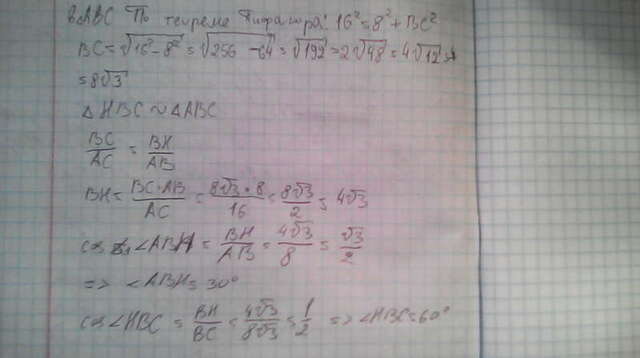 В ABC По теореме Пифагора: 16² = 8² + BC²
BC = √16² - 8² = √256 - 64 = √192 = 2√48 = 4√12 =
= 8√3
△ HBC ∾ △ABC
BC/AC = BH/AB
BH = BC·AB/AC = 8√3 · 8/16 = 8√3/2 = 4√3
cos ∠ABH = BH/AB = 4√3/8 = √3/2
=> ∠ABH = 30°
cos ∠HBC = BH/BC = 4√3/8√3 = 1/2 => ∠HBC = 60°